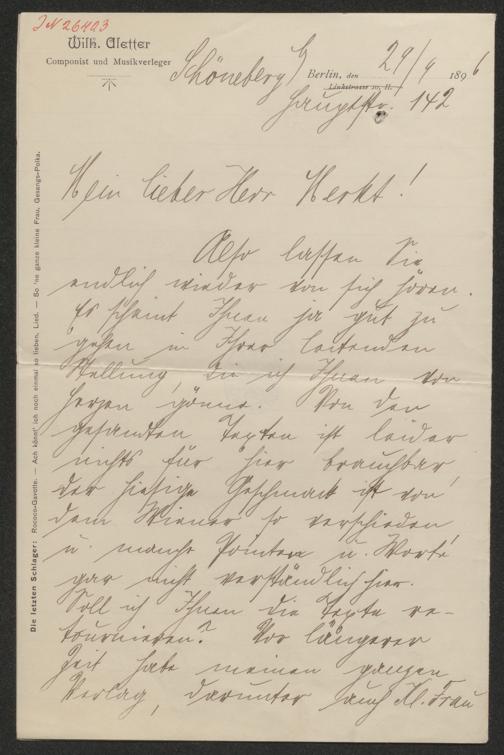 JN 26403
Wilh. Aletter
Componist und Musikverleger
Schöneberg b/
Berlin, den 29/9 1896
Linkstrasse 10, II.
Hauptstr. 142
Mein lieber Herr Merkt!
Also lassen Sie
endlich wieder von sich hören.
Es scheint Ihnen ja gut zu
gehen in Ihrer leitenden
Stellung, die ich Ihnen von
Herzen gönne. Von den
gesandten Texten ist leider
nichts für hier brauchbar,
der hiesige Geschmack ist von
dem Wiener so verschieden
u. manche Pointen u. Worte
gar nicht verständlich hier.
Soll ich Ihnen die Texte re-
tournieren? Vor längerer
Zeit habe meinen ganzen
Verlag, darunter auch Kl. Frau
Die letzten Schlager: Rococo-Gavotte. — Ach könnt' ich noch einmal so lieben, Lied. — So 'ne ganze kleine Frau, Gesangs-Polka.